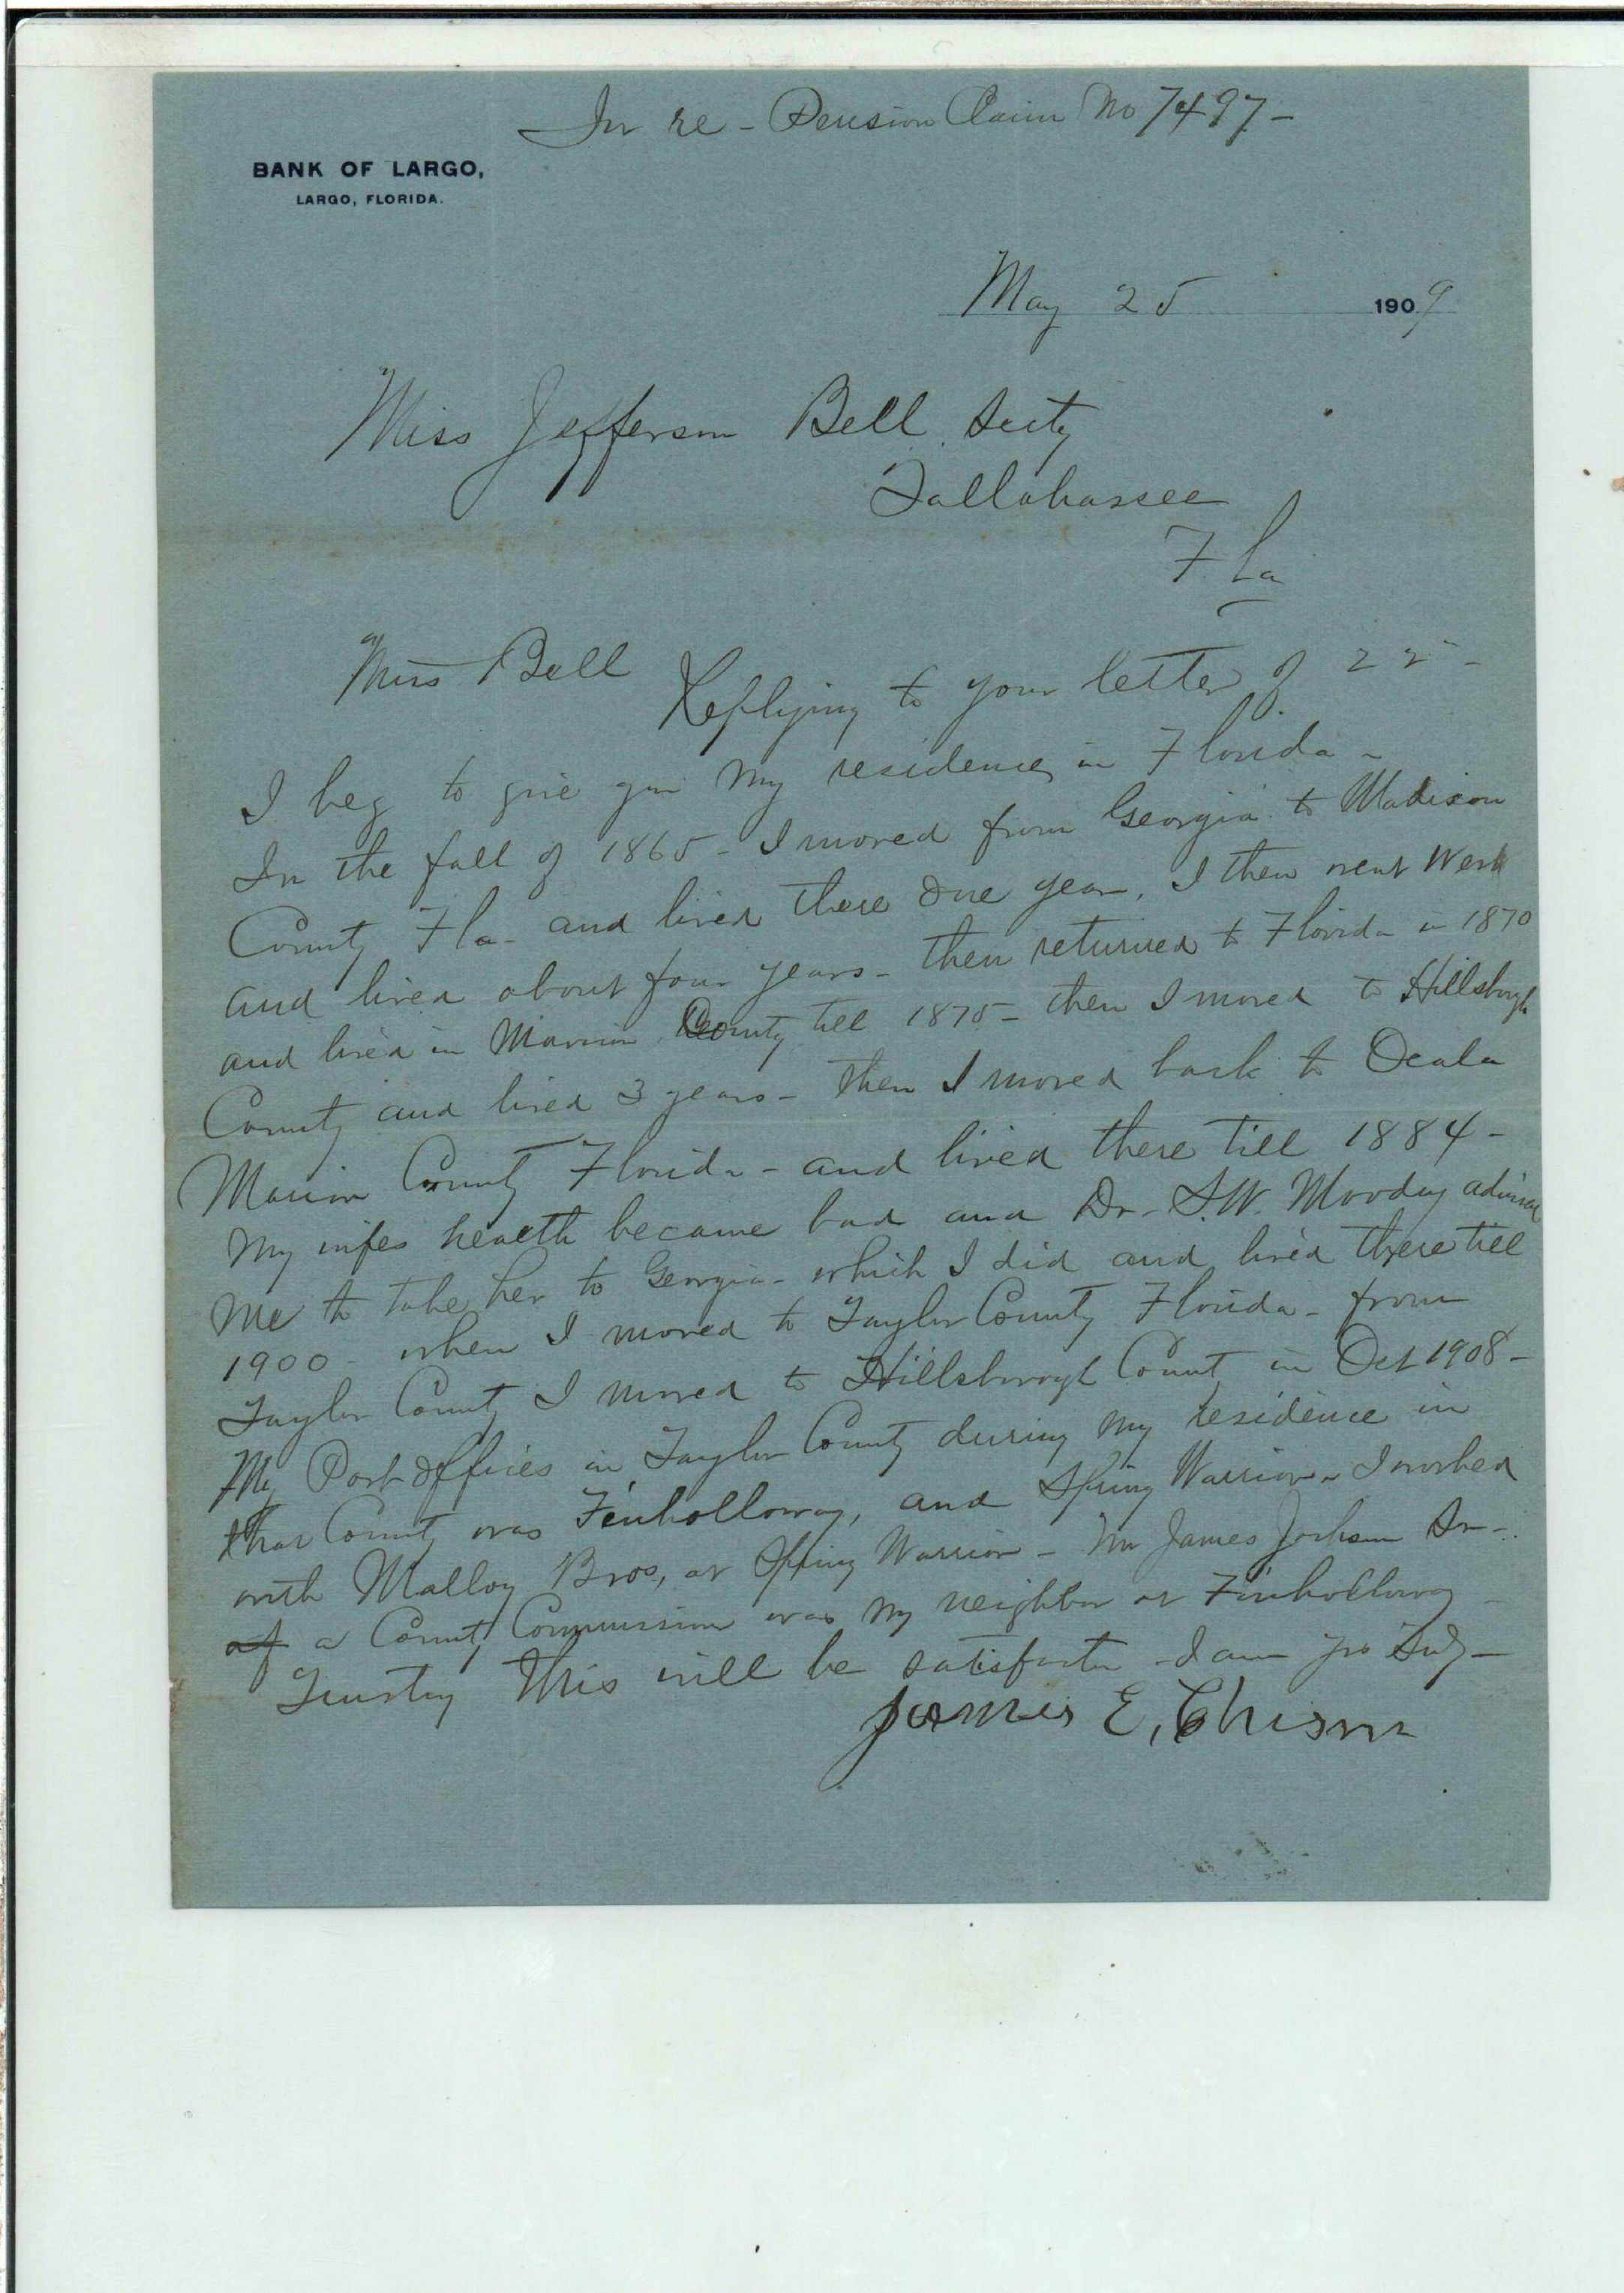 In re - Pension Claim No 7497 -
BANK OF LARGO,
LARGO, FLORIDA.
May 25 1909
Miss Jefferson Bell Secty
Tallahassee
Fla
Miss Bell
Replying to your letter of 22 -
I beg to give you my residences in Florida -
In the fall of 1865 - I moved from Georgia to Madison
County Fla - and lived there One year, I then went West
and lived about four years - then returned to Florida in 1870
and lived in Marion County till 1875 - then I moved to Hillsborough
County and lived 3 years - then I moved back to Ocala
Marion County Florida - and lived there till 1884 -
My wifes health became bad and Dr. S.W. Moody advised
me to take her to Georgia - which I did and lived there till
1900 - when I moved to Taylor County Florida - from
Taylor County I moved to Hillsborough County in Oct 1908 -
My Post Offices in Taylor County during my residence in
that County was Fenholloway, and Spring Warrior - I worked
with Malloy Bros, at Spring Warrior - Mr James Sr -
of a County Commissioner was my neighbor at Finholloway -
Trusting this will be satisfactory - I am yrs truly -
James E, Chism